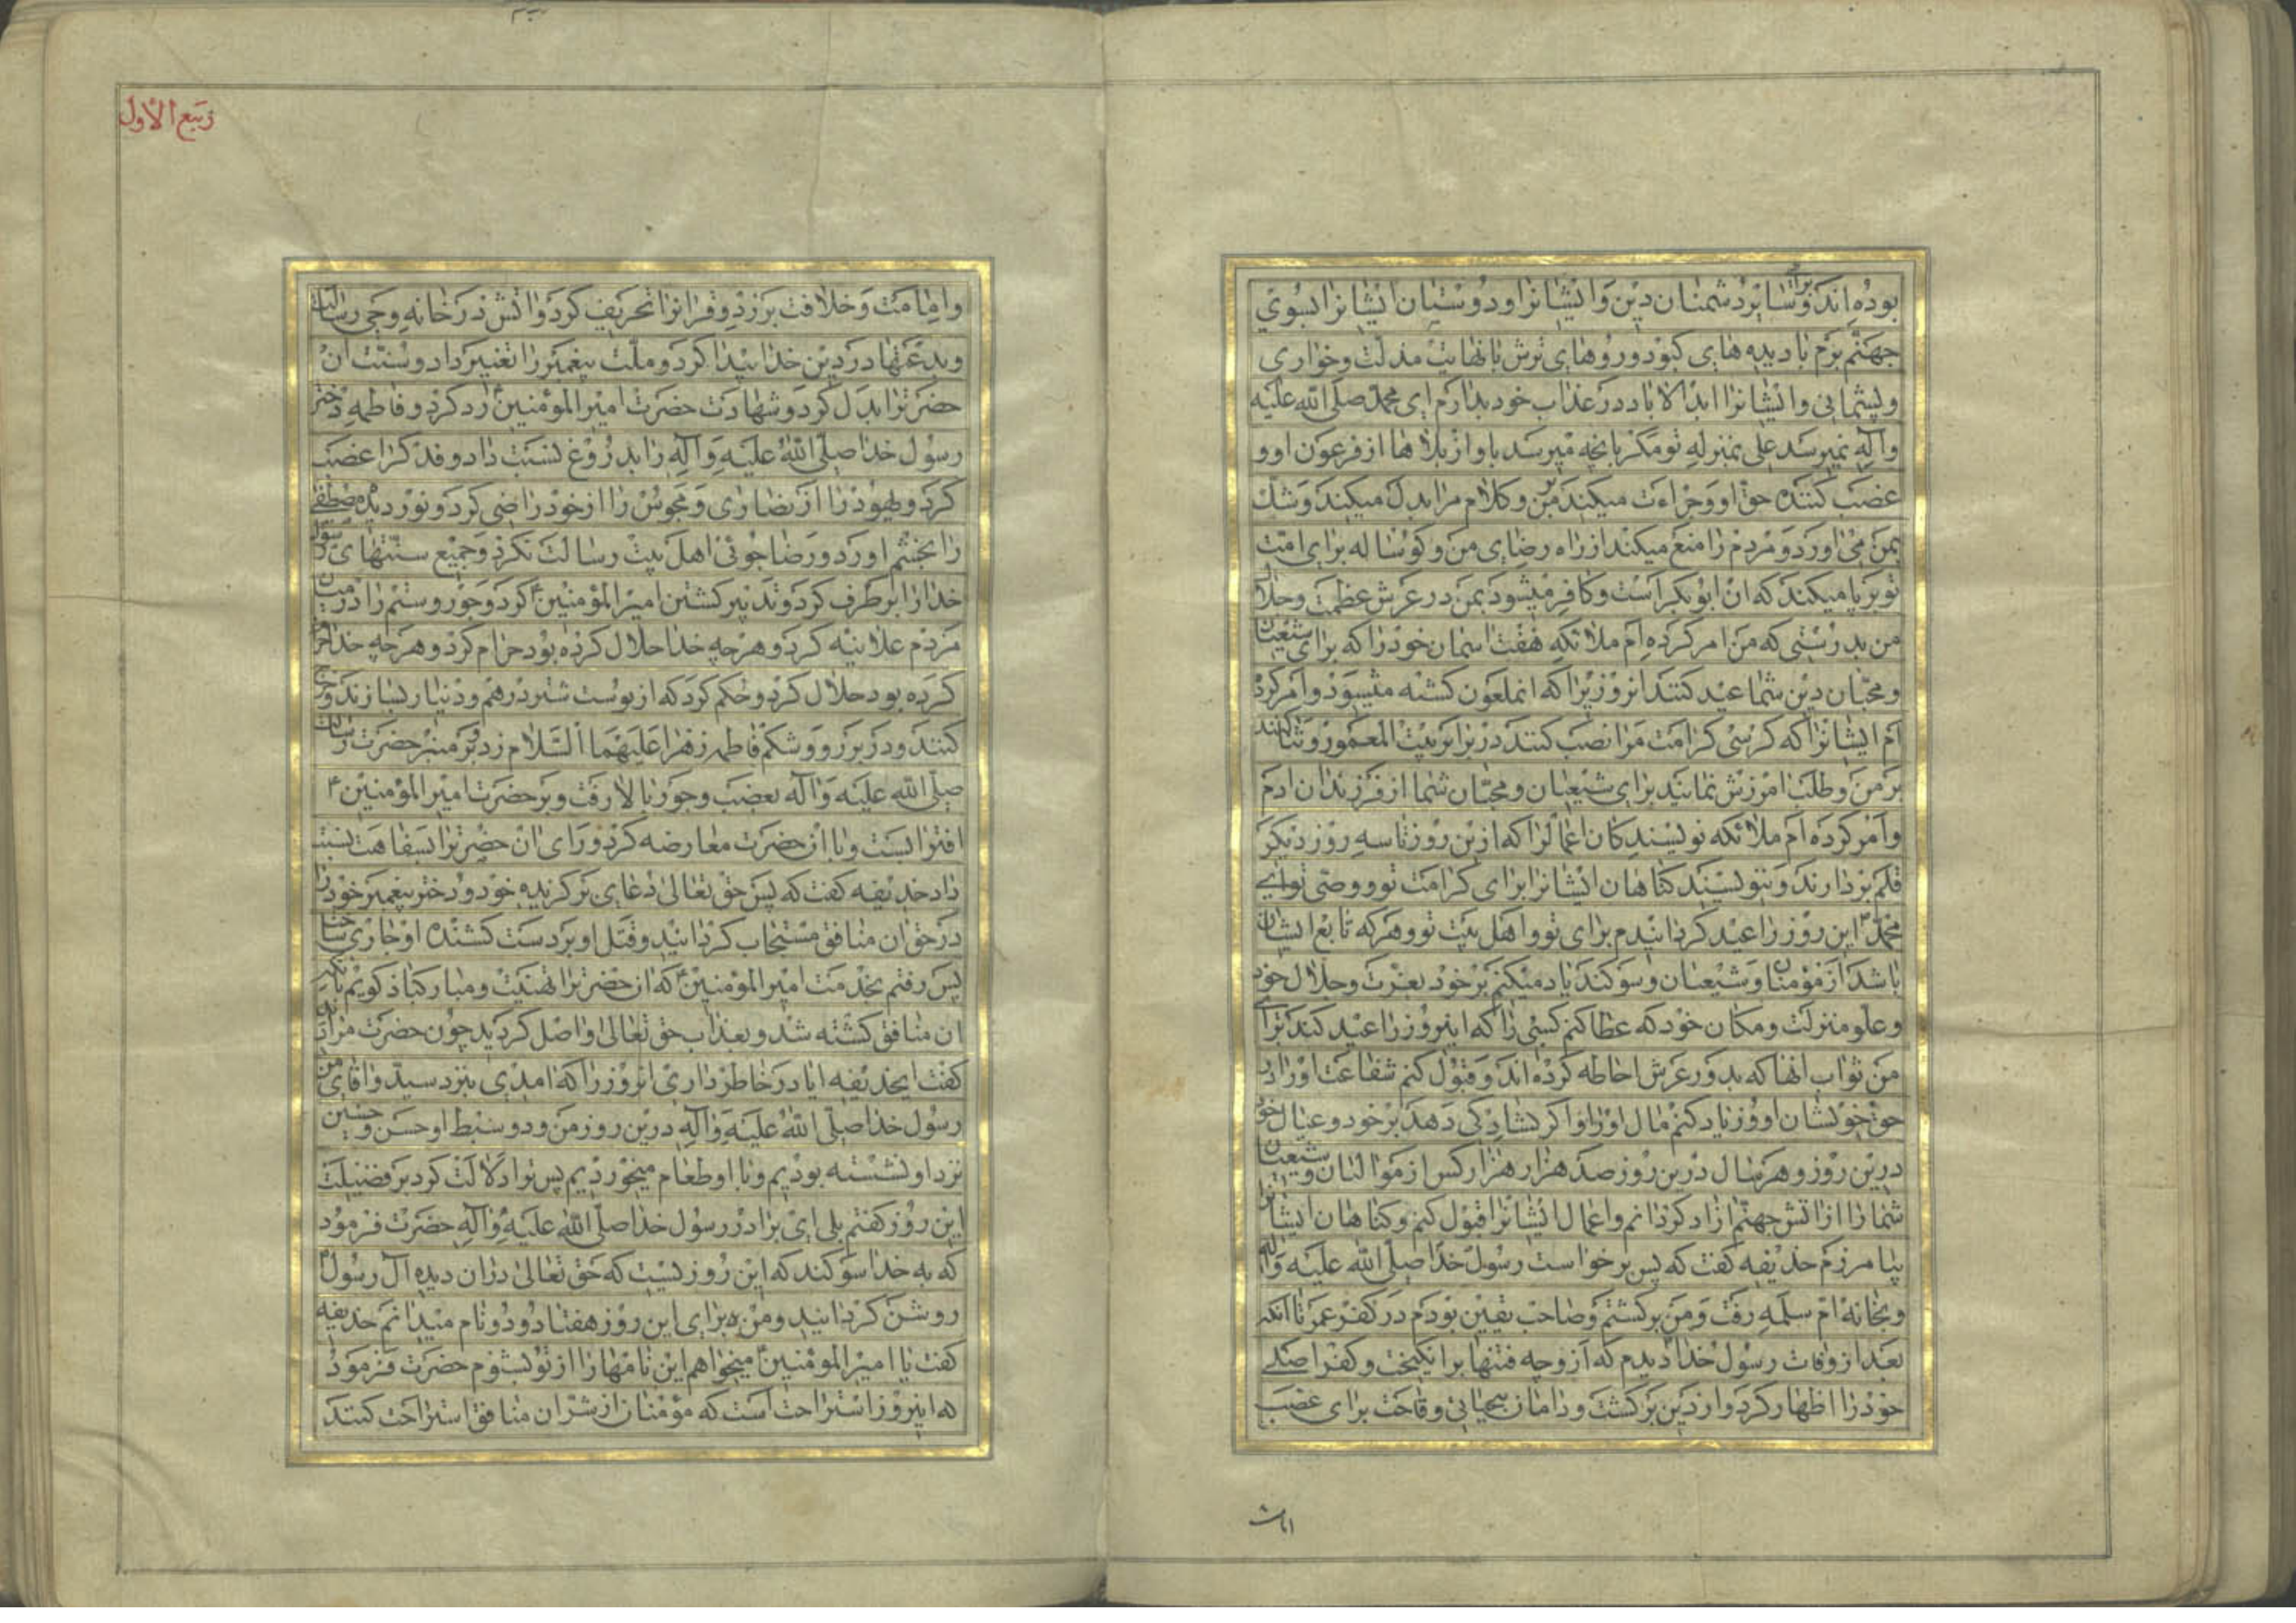 بوده‌اند و برات و سایر دشمنان دین و ایشانرا و دوستان ایشانرا بسوی
جهنم برم با دیده های کبود و روهای ترش با نهایت مذلت و خواری
و پشیمانی و ایشانرا ابد الاباد در عذاب خود بدارم ای محمد صلی الله علیه
و آله نمیرسد علی بمنزلهٔ تو مگر بانچه میرسد باو از بلاها از فرعون او و
غصب کننده حق او و جراءت میکند بر من و کلام مرا بدل میکند و شک
بمن می‌اورد و مردم را منع میکند از راه رضای من و گوساله برای امت
تو برپا میکند که ان ابوبکر است و کافر میشود بمن در عرش عظمت و جلال
من بدرستی که من امر کرده‌ام ملائکه هفت اسمان خود را که برای شیعیان
و محبان دین شما عید کنند انروزیرا که انملعون کشته میشود و امر کرده
ام ایشانرا که کرسی کرامت مرا نصب کنند در برابر بیت المعمور و ثنا کنند
بر من و طلب امرزش نمایند برای شیعیان و محبان شما از فرزندان ادم
و امر کرده ام ملائکه نویسندکان اعمالرا که ازین روز تا سه روز دیگر
قلم بردارند و ننویسند گناهان ایشانرا برای کرامت تو و وصی تو ای
محمد این روز را عید گردانیدم برای تو و اهل بیت تو و هرکه تابع ایشان
باشد از مؤمنان و شیعیان و سوگند یاد میکنم بر خود بعزت و جلال خود
و علو منزلت و مکان خود که عطا کنم کسی را که اینروز را عید کند برای
من ثواب انها که بدور عرش احاطه کرده اند و قبول کنم شفاعت او را در
حق خویشان او و زیاد کنم مال او را اگر گشادگی دهد بر خود و عیال خود
درین روز و هر سال درین روز صد هزار هزار کس از موالیان و شیعیان
شما را از آتش جهنم ازاد گردانم و اعمال ایشانرا قبول کنم و گناهان ایشانرا
بیامرزم حذیفه گفت که پس برخواست رسول خدا صلی الله علیه و آله
و بخانهٔ ام سلمه رفت و من برگشتم و صاحب یقین بودم در کفر عمر تا انکه
بعد از وفات رسول خدا دیدم که او چه فتنها برانگیخت و کفر اصلی
خود را اظهار کرد و از دین برگشت و دامان بیحیائی و وقاحت برای غصب
ربیع الاول
و امامت و خلافت بر زد و قرانرا تحریف کرد و اتش در خانهٔ وحی و رسالت
و بدعتها در دین خدا پیدا کرد و ملت پیغمبر را تغییر داد و سنت ان
حضرترا بدل کرد و شهادت حضرت امیر المؤمنین را رد کرد و فاطمه دختر
رسول خدا صلی الله علیه و آله را بدروغ نسبت داد و فدک را غصب
کرد و یهود را از نصاری و مجوس را از خود راضی کرد و نور دیده مصطفی
را بخشم اورد و رضاجوئی اهل بیت رسالت نکرد و جمیع سنتهای رسول
خدا را برطرف کرد و تدبیر کشتن امیر المؤمنین کرد و جور و ستم را در میان
مردم علانیه کرد و هرچه خدا حلال کرده بود حرام کرد و هرچه خدا حرام
کرده بود حلال کرد و حکم کرد که از پوست شتر درهم و دنیار بسازند و خرج
کنند و در بر رو و شکم فاطمه زهرا علیهما السلام زد و بر منبر حضرت رسالت
صلی الله علیه و آله بغضب و جور بالا رفت و بر حضرت امیر المؤمنین
افترا بست و با ان حضرت معارضه کرد و رای ان حضرترا بسفاهت نسبت
داد حذیفه گفت که پس حق تعالی دعای برگزیده خود و دختر پیغمبر خود را
در حق ان منافق مستجاب گردانید و قتل او بر دست کشنده او جاری ساخت
پس رفتم بخدمت امیر المؤمنین که ان حضرترا تهنیت و مبارکباد گویم بانکه
ان منافق کشته شد و بعذاب حق تعالی واصل گردید چون حضرت مرا دید
گفت ایحذیفه ایا در خاطر داری انروز را که امدی بنزد سید و اقای من
رسول خدا صلی الله علیه و آله درین روز من و دو سبط او حسن و حسین
نزد او نشسته بودیم و با او طعام میخوردیم پس ترا دلالت کرد بر فضیلت
این روز گفتم بلی ای برادر رسول خدا صلی الله علیه و آله حضرت فرمود
که به خدا سوگند که این روزیست که حق تعالی دران دیده آل رسول
روشن گردانید و من برای این روز هفتاد و دو نام میدانم حذیفه
گفت یا امیر المومنین میخواهم این نامها را از تو بشنوم حضرت فرمود
که اینروز استراحت است که مؤمنان از شر ان منافق استراحت کنند